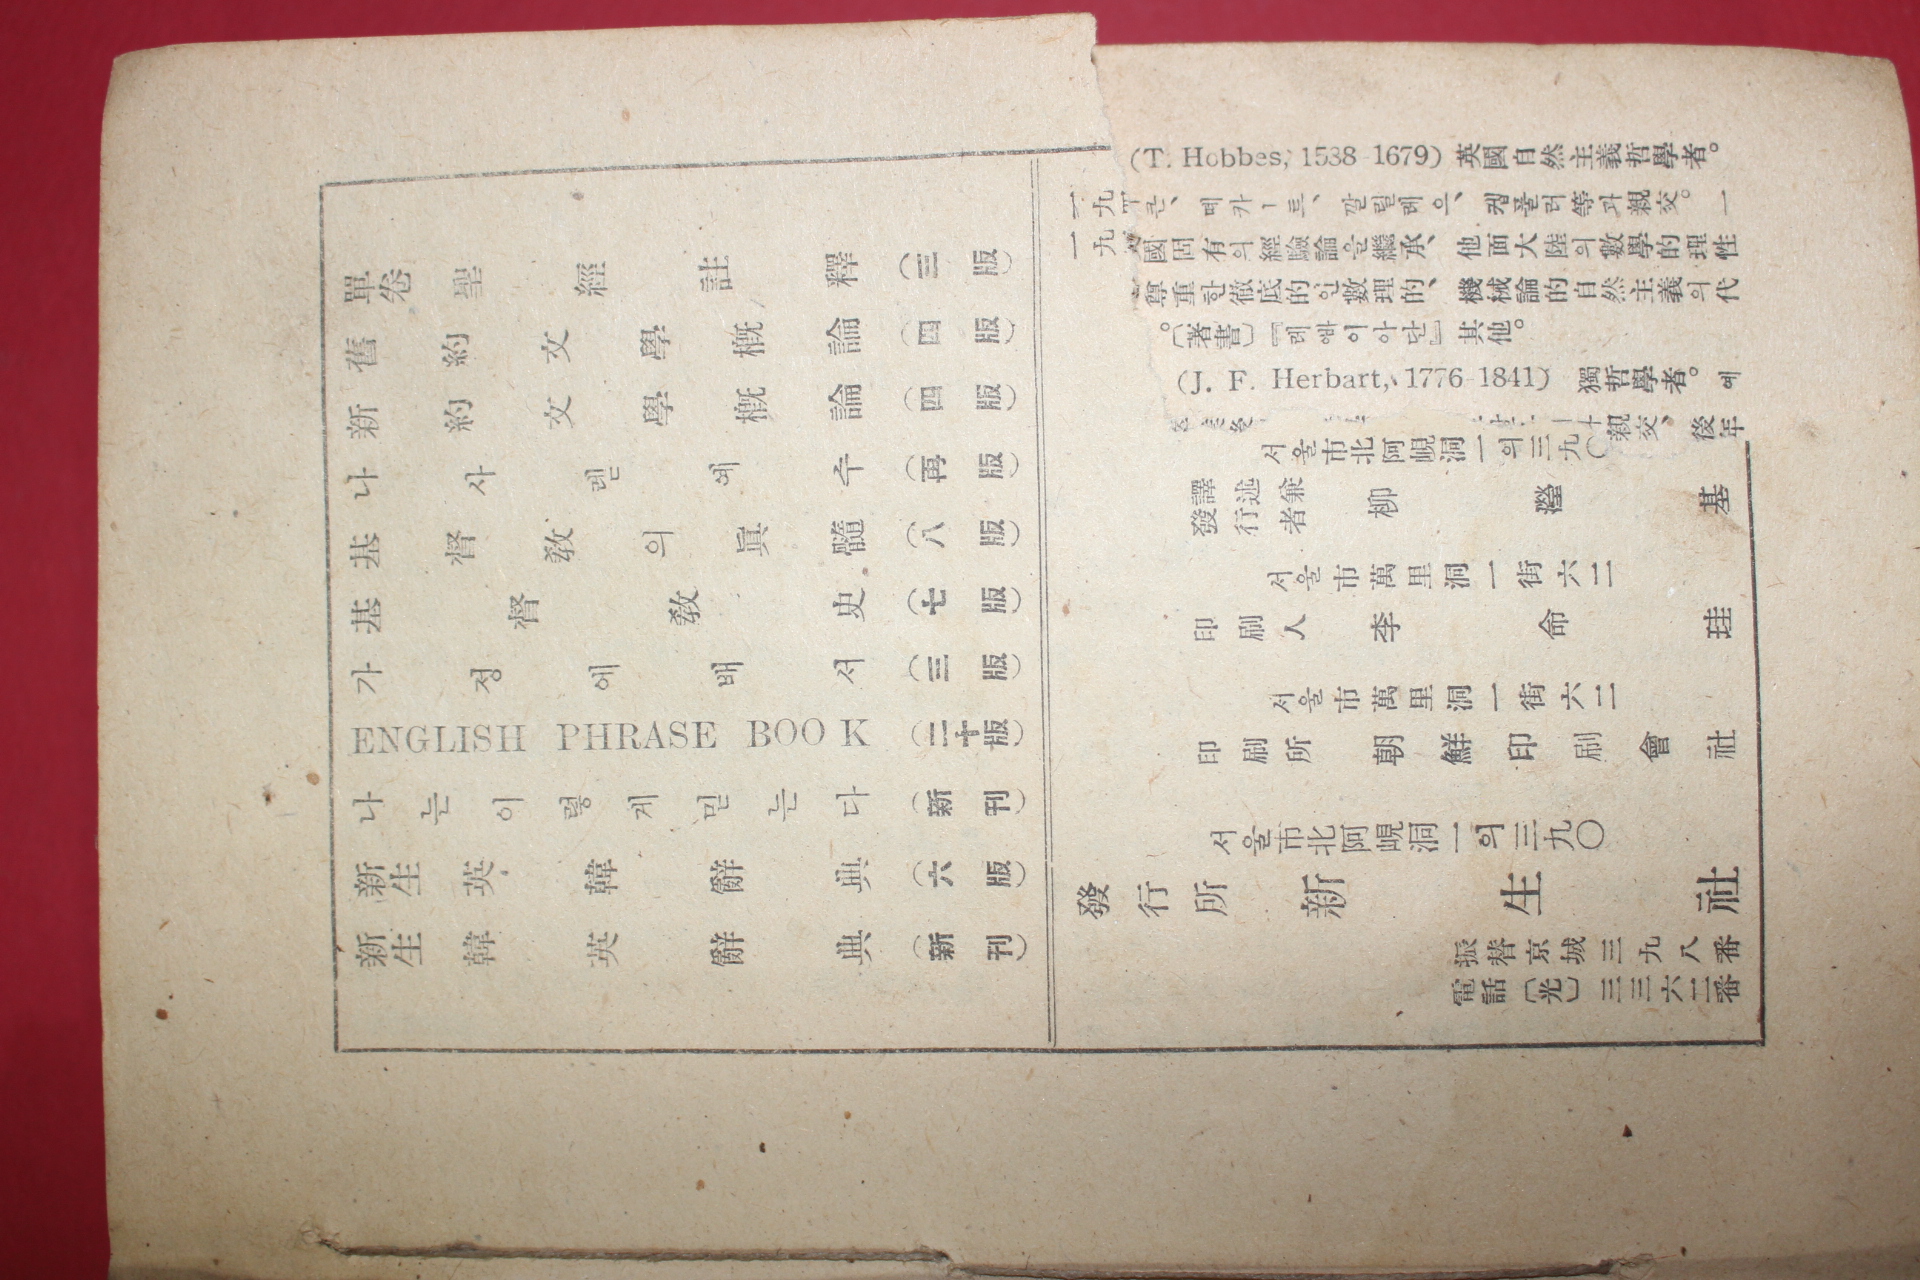 單卷聖經註釋(三版)
舊約文學槪論(四版)
新約文學槪論(四版)
나사렛예수(再版)
基督敎의眞髓(八版)
基督敎史(七版)
가정예배서(三版)
ENGLISH PHRASE BOOK(二十版)
나는이렇게믿는다(新刊)
新生英韓辭典(六版)
新生韓英辭典(新刊)
(T. Hobbes, 1588-1679) 英國自然主義哲學者。
一九 큰、떼카ー트、깔릴레오、켚풀러等과親交。一
一九 國固有의經驗論을繼承、他面大陸의數學的理性
尊重한徹底的인數理的、機械論的自然主義의代
。〔著書〕『레빠이아단』其他。
(J. F. Herbart, 1776-1841) 獨哲學者。예
親交、後年
서울市北阿峴洞一의三九〇
譯述兼發行者 柳瀅基
서울市萬里洞一街六二
印刷人 李命珪
서울市萬里洞一街六二
印刷所 朝鮮印刷會社
서울市北阿峴洞一의三九〇
發行所 新生社
振替京城三九八番
電話〔光〕三三六二番